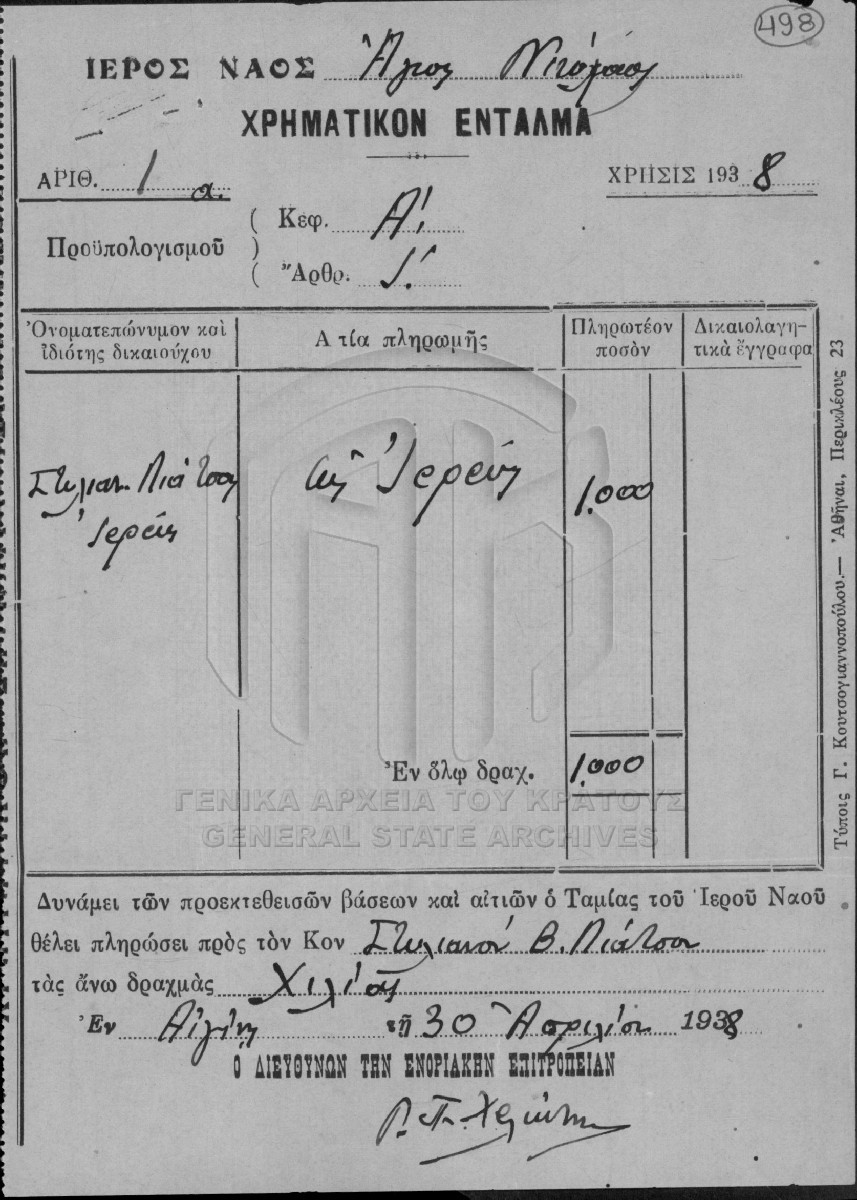 498
ΙΕΡΟΣ ΝΑΟΣ Ἅγιος Νικόλαος
ΧΡΗΜΑΤΙΚΟΝ ΕΝΤΑΛΜΑ
ΑΡΙΘ. 1 α.
ΧΡΗΣΙΣ 1938
Προϋπολογισμοῦ
Κεφ. Α'.
Ἄρθρ. 1.
Ὀνοματεπώνυμον καὶ ἰδιότης δικαιούχου
Α τία πληρωμῆς
Πληρωτέον ποσὸν
Δικαιολαγητικὰ ἔγγραφα
Στυλιαν. Λιάτσον
Ἱερεύς
ὡς Ἱερεύς
1.000
Ἐν ὅλῳ δραχ. 1.000
ΓΕΝΙΚΑ ΑΡΧΕΙΑ ΤΟΥ ΚΡΑΤΟΥΣ
GENERAL STATE ARCHIVES
Δυνάμει τῶν προεκτεθεισῶν βάσεων καὶ αἰτιῶν ὁ Ταμίας τοῦ Ἱεροῦ Ναοῦ
θέλει πληρώσει πρὸς τὸν Κον Στυλιανόν Β. Λιάτσον
τὰς ἄνω δραχμὰς Χιλίας
Ἐν Αἰγίνῃ τῇ 30 Ἀπριλίου 1938
Ο ΔΙΕΥΘΥΝΩΝ ΤΗΝ ΕΝΟΡΙΑΚΗΝ ΕΠΙΤΡΟΠΕΙΑΝ
Τύποις Γ. Κουτσογιαννοπούλου.— Ἀθῆναι, Περικλέους 23